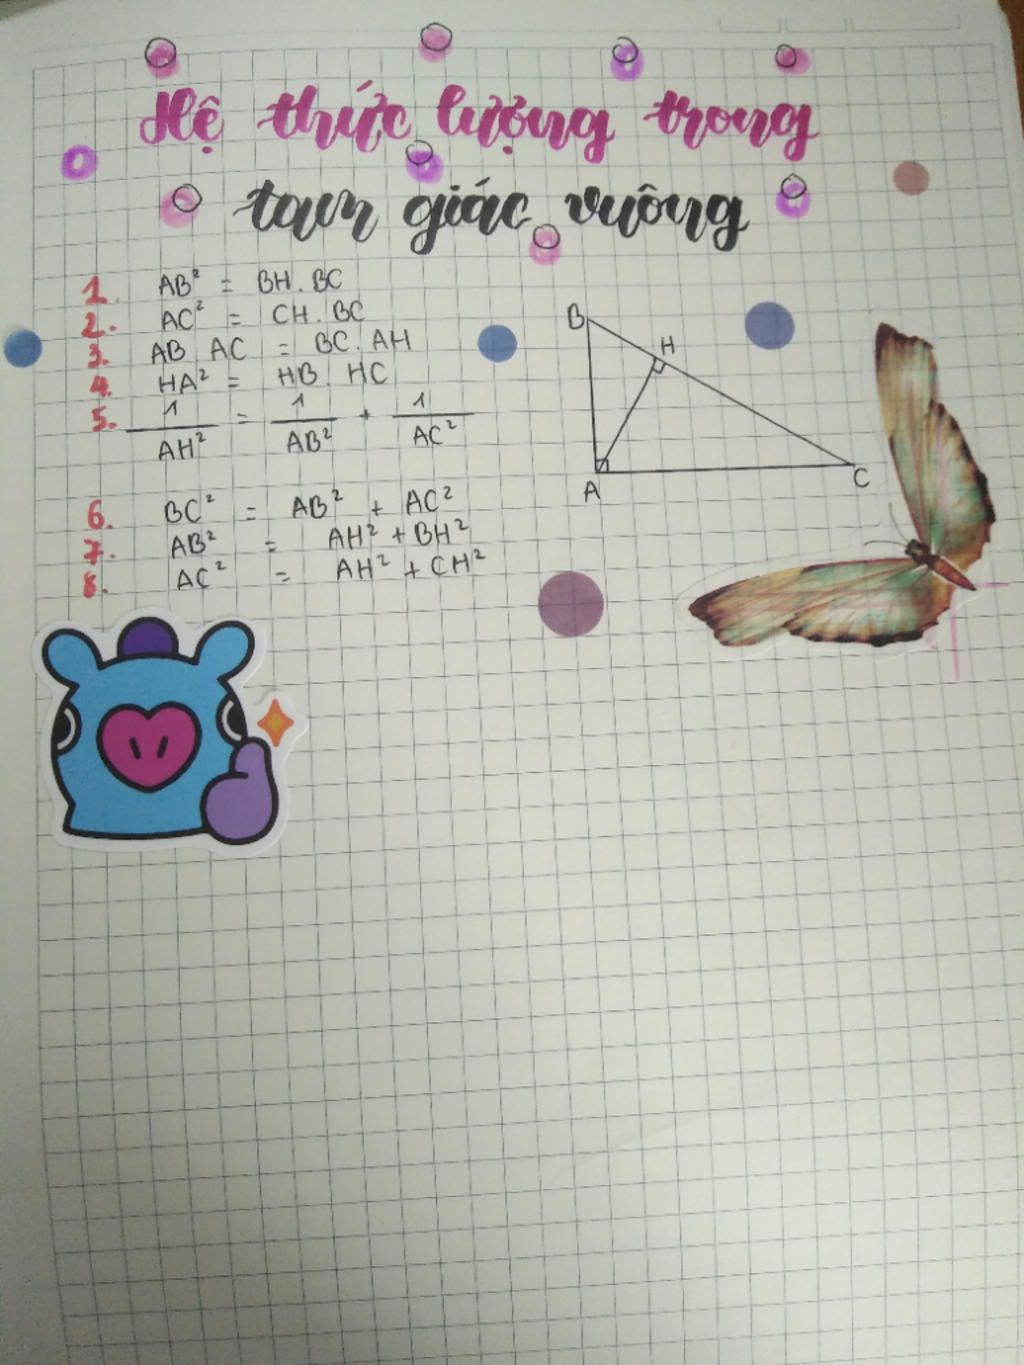 Hệ thức lượng trong
tam giác vuông
1. AB² = BH.BC
2. AC² = CH.BC
3. AB AC = BC.AH
4. HA² = HB.HC
5. 1/AH² = 1/AB² + 1/AC²
6. BC² = AB² + AC²
7. AB² = AH² + BH²
8. AC² = AH² + CH²
B
H
A
C